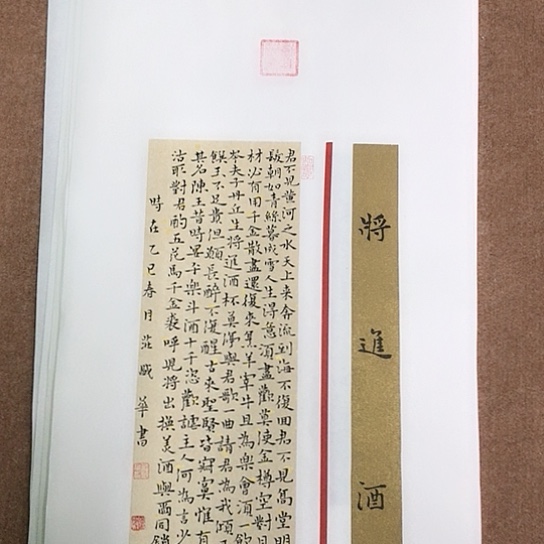 將進酒
君不見黃河之水天上来奔流到海不復回君不見高堂明
髮朝如青絲暮成雪人生得意須盡歡莫使金樽空對月
材必有用千金散盡還復來烹羊宰牛且為樂會須一飲
岑夫子丹丘生將進酒杯莫停與君歌一曲請君為我傾
饌玉不足貴但願長醉不復醒古來聖賢皆寂寞惟有
其名陳王昔時宴平樂斗酒十千恣歡謔主人何為言少
沽取對君酌五花馬千金裘呼兒將出換美酒與爾同銷
時在乙巳春月莊威華書